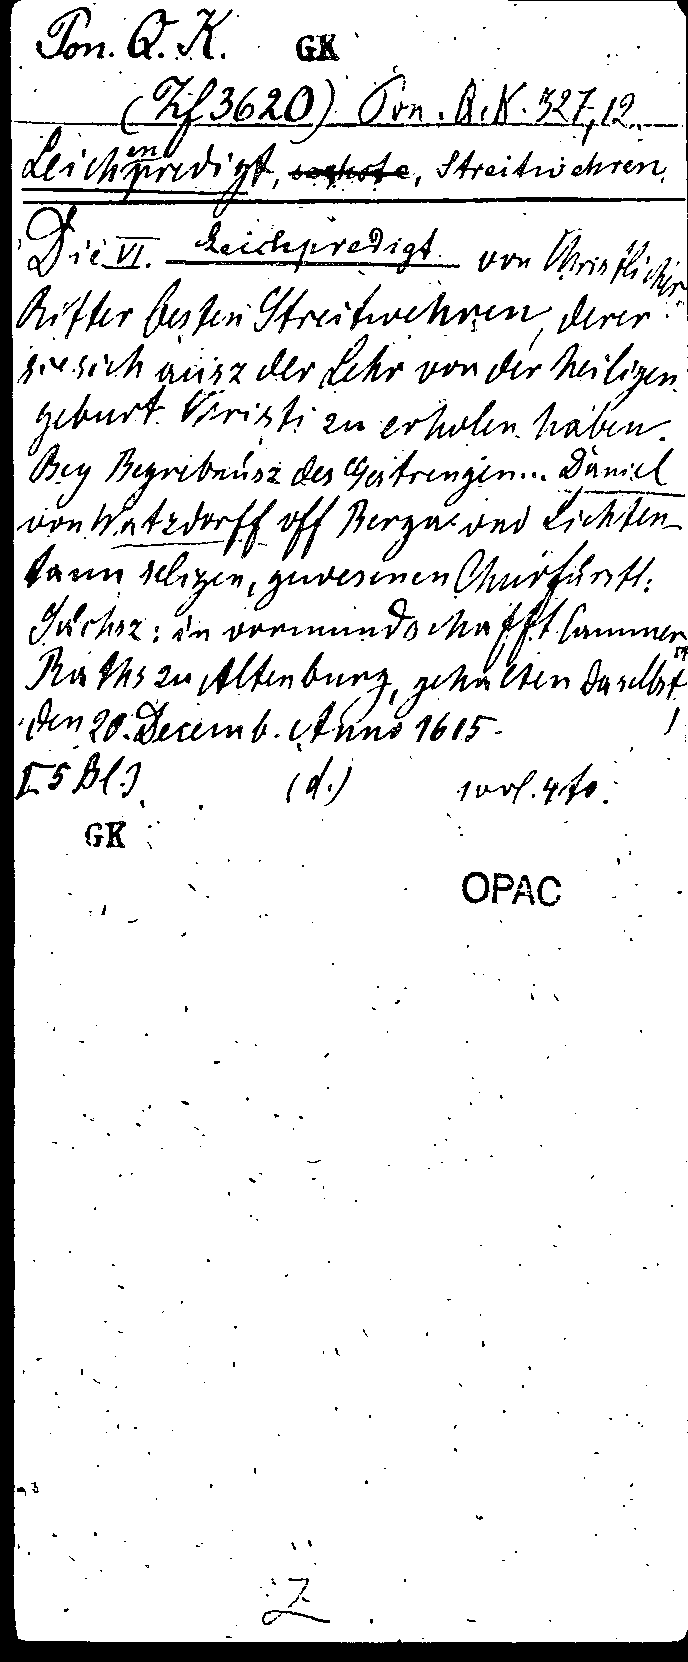 Pon. Q. K. GK
(Zf 3620) Pon. Q. K. 327,12.
Leichenpredigt, sechste, Streitwehren.
Die VI. Leichpredigt von Christlicher
Ritter besten Streitwehren, derer
sie sich ausz der Lehr von der heiligen
geburt Christi zu erholen haben.
Bey Begrebnusz des Gestrengen... Daniel
von Watzdorff off Berga und Lichten
tann seligen, gewesenen Churfürstl:
Sächsz: in vormundschafft Cammer
Raths zu Altenburg, gehalten daselbst
den 20. Decemb. Anno 1615.
[5 Bl.] (d.) 1 vol. 4to.
GK
OPAC
Z